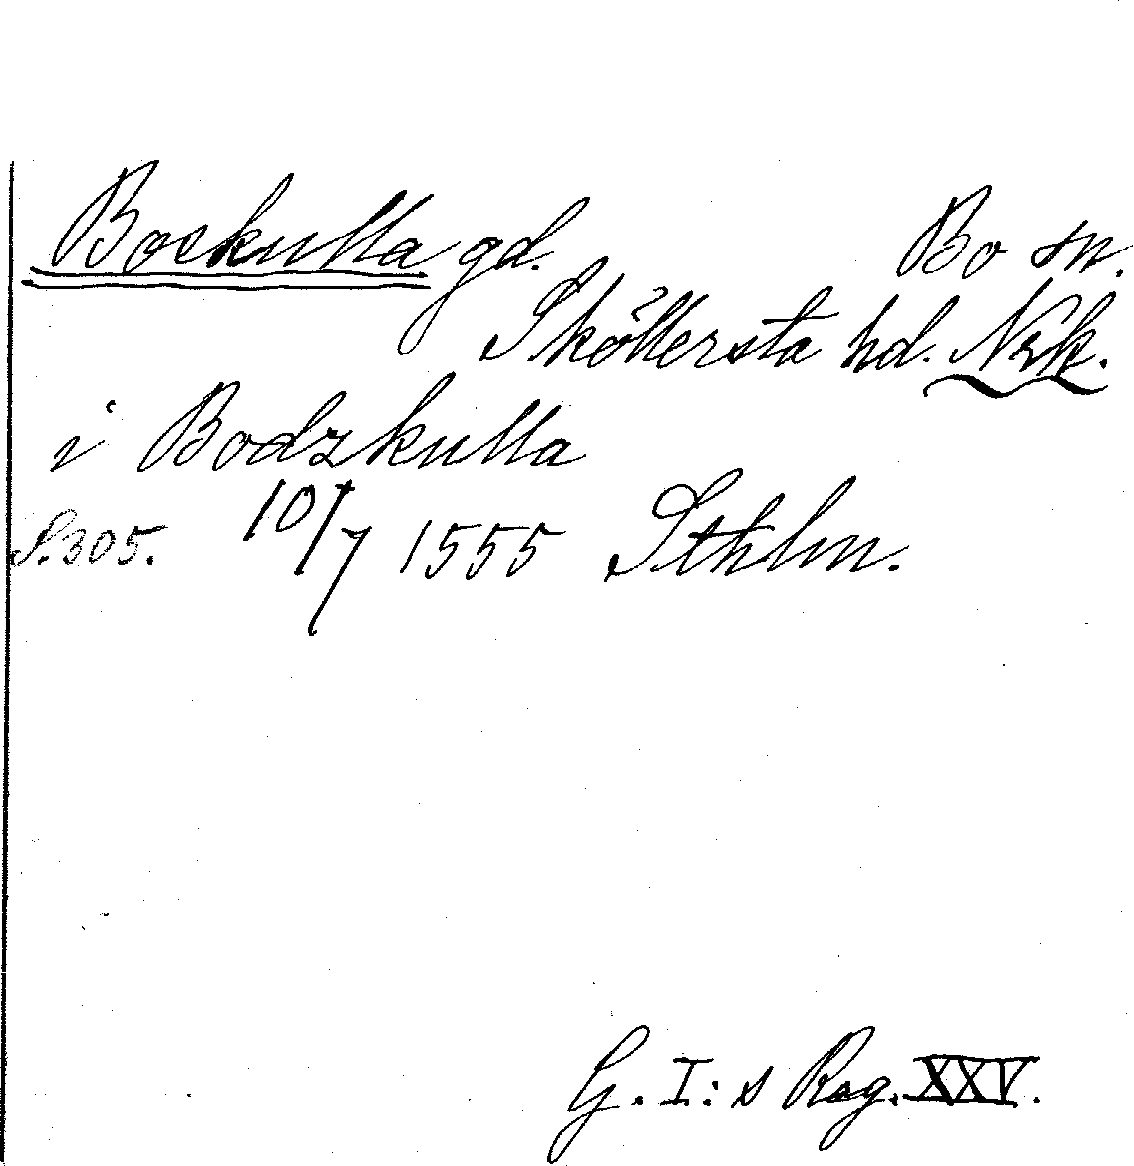 Bockulla gd. Bo sn.
Sköllersta hd. Nrk.
i Bodzkulla
S. 305. 10/7 1555 Sthlm.
G. I:s Reg. XXV.